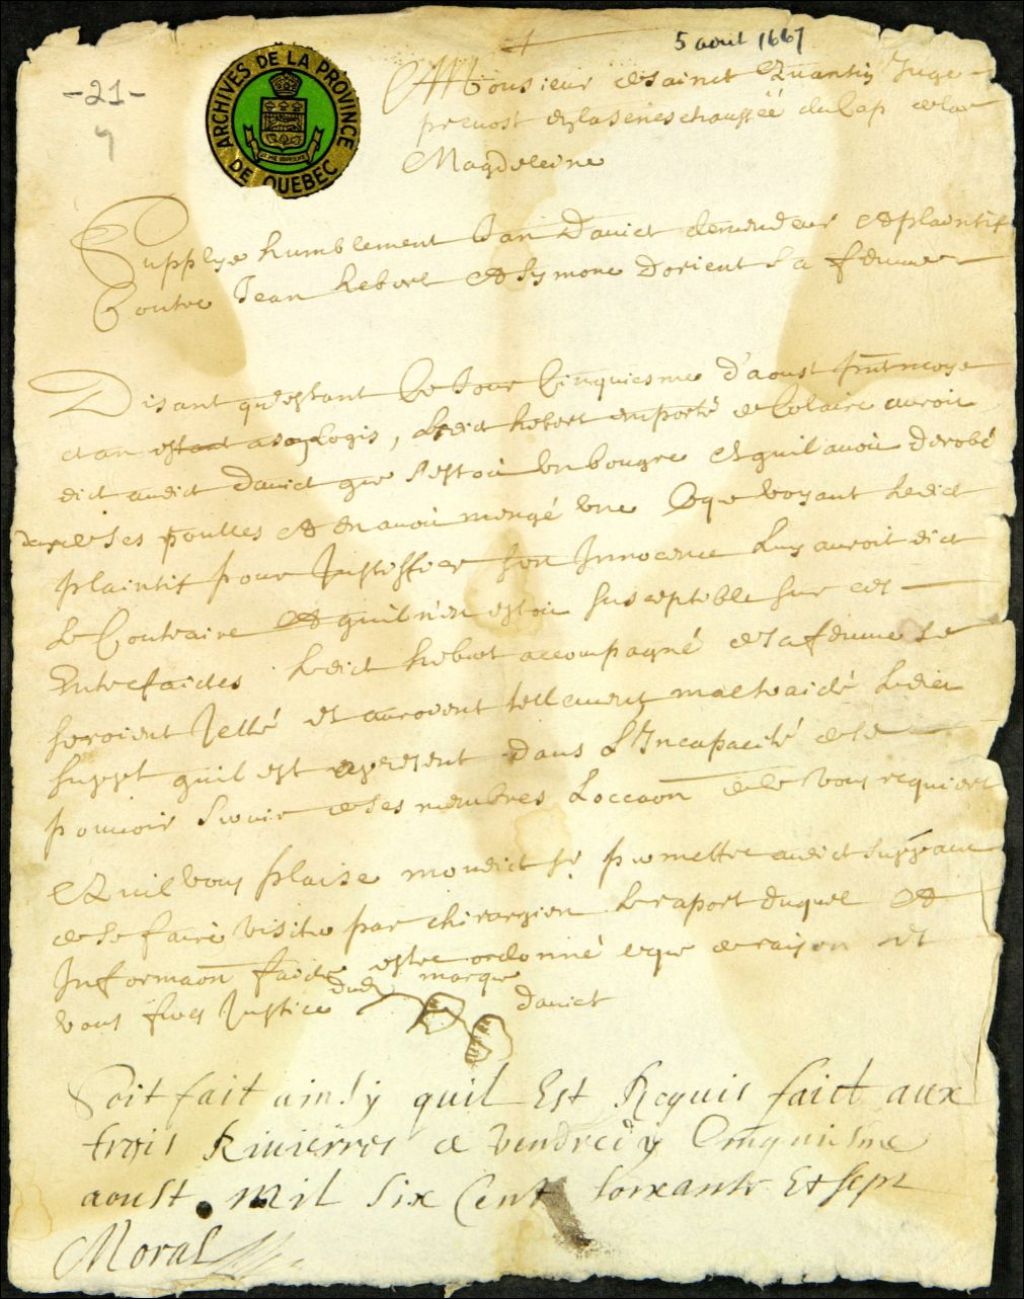 5 aout 1667
-21-
ARCHIVES DE LA PROVINCE DE QUEBEC
A Monsieur de sainct Quantin Juge
prevost de la seneschaussée du Cap de la
Magdeleine
Supplye humblement Jan Daniet demendeur et plaintif
Contre Jean hebert et Symone Dorient Sa femme
Disant qu'estant Ce Jour Cinquiesme d'aoust pnt moys
et an estant a son Logis, Ledict hebert emporté de Colaire auroit
dict audict Daniet que s'estoit un bougre et quil avoit derobé
de ses poulles et en avoit mengé une Ce que voyant Ledict
plaintif pour Justiffier son Innocence Luy auroit dict
Le Contraire et quil n'en estoit susceptible sur ces
Entrefaictes Ledict hebert accompagné de sa femme se
seroient Jetté et auroient tellement maltraicté Ledict
suppt quil est apresent dans L'Incapacité de se
pouvoir servir de ses membres Loccaon de le vous requiert
Quil vous plaise mondict sr. promettre audict supant
de se faire visiter par chirurgien Le raport duquel et
Informaon faicte estre ordonné ce que de raison et
vous ferez Justice
dud marque Daniet
Soit fait ainsy quil Est Requis faict aux
trois Rivierres ce vendredy Cinquiesme
aoust mil Six Cent soixante Et sept
Moral